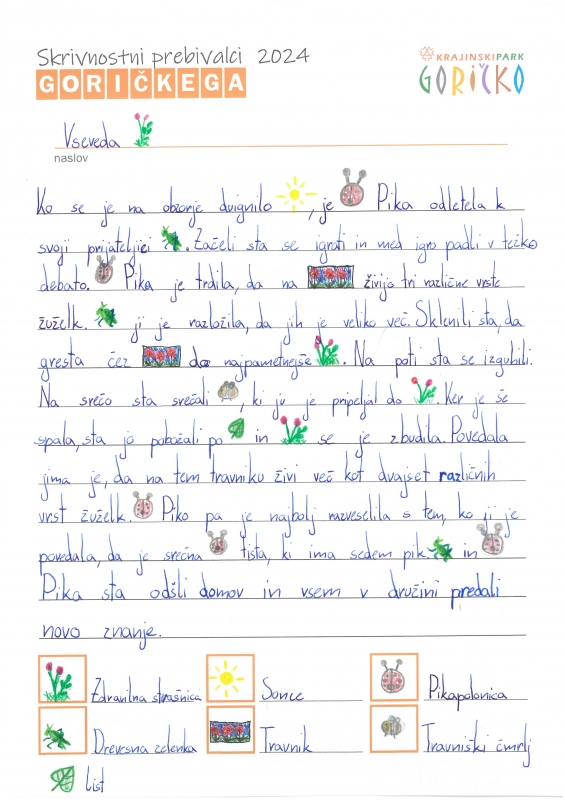 Skrivnostni prebivalci 2024
GORIČKEGA
KRAJINSKI PARK
GORIČKO
Vseveda
naslov
Ko se je na obzorje dvignilo , je Pika odletela k
svoji prijateljici . Začeli sta se igrati in med igro padli v težko
debato. Pika je trdila, da na živijo tri različne vrste
žuželk. ji je razložila, da jih je veliko več. Sklenili sta, da
gresta čez do najpametnejše . Na poti sta se izgubili.
Na srečo sta srečali , ki ju je pripeljal do . Ker je še
spala, sta jo pobožali po in se je zbudila. Povedala
jima je, da na tem travniku živi več kot dvajset različnih
vrst žuželk. Piko pa je najbolj razveselila s tem, ko ji je
povedala, da je srečna tista, ki ima sedem pik. in
Pika sta odšli domov in vsem v družini predali
novo znanje.
Zdravilna strašnica Sonce Pikapolonica
Drevesna zelenka Travnik Travniški čmrlj
list